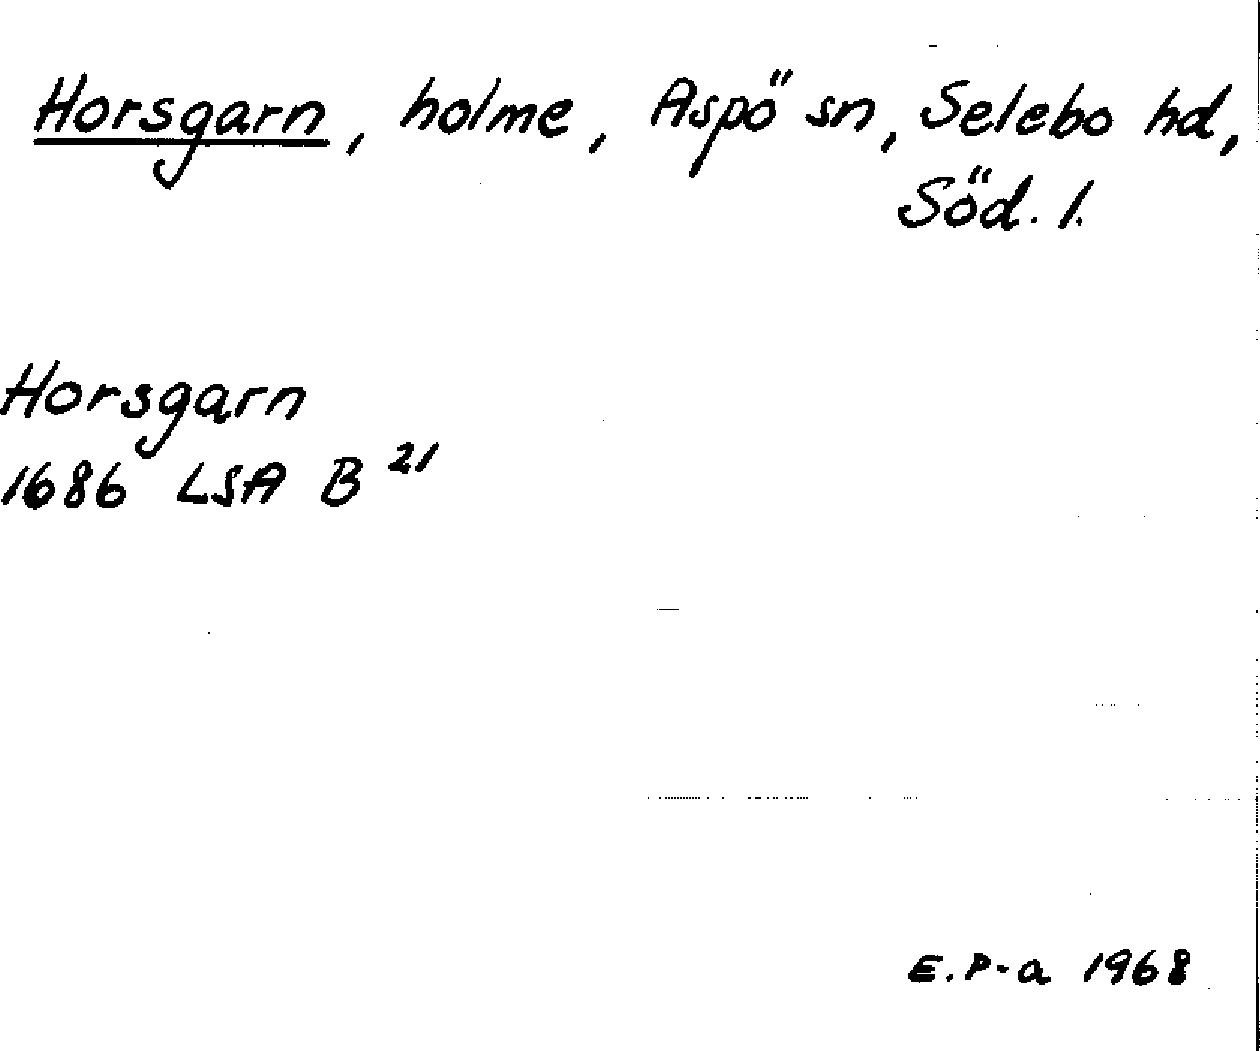 Horsgarn, holme, Aspö sn, Selebo hd,
Söd. l.
Horsgarn
1686 LSA B 21
E.P-a 1968